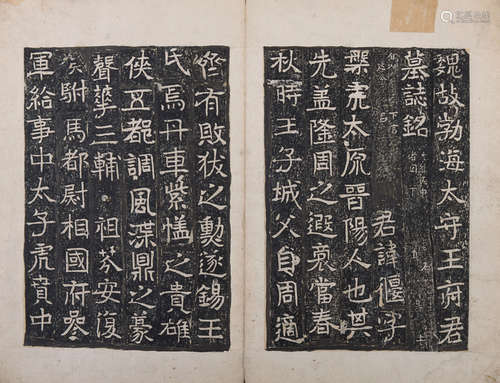 魏故勃海太守王府君
墓誌銘
君諱偃字
槃虎太原晉陽人也其
先蓋隆周之遐裔當春
秋時王子城父自周適
齊有敗狄之勳遂錫王
氏焉丹車紫蓋之貴雄
俠五都調風渫鼎之豪
聲華三輔祖芬安復
侯駙馬都尉相國府參
軍給事中太子虎賁中